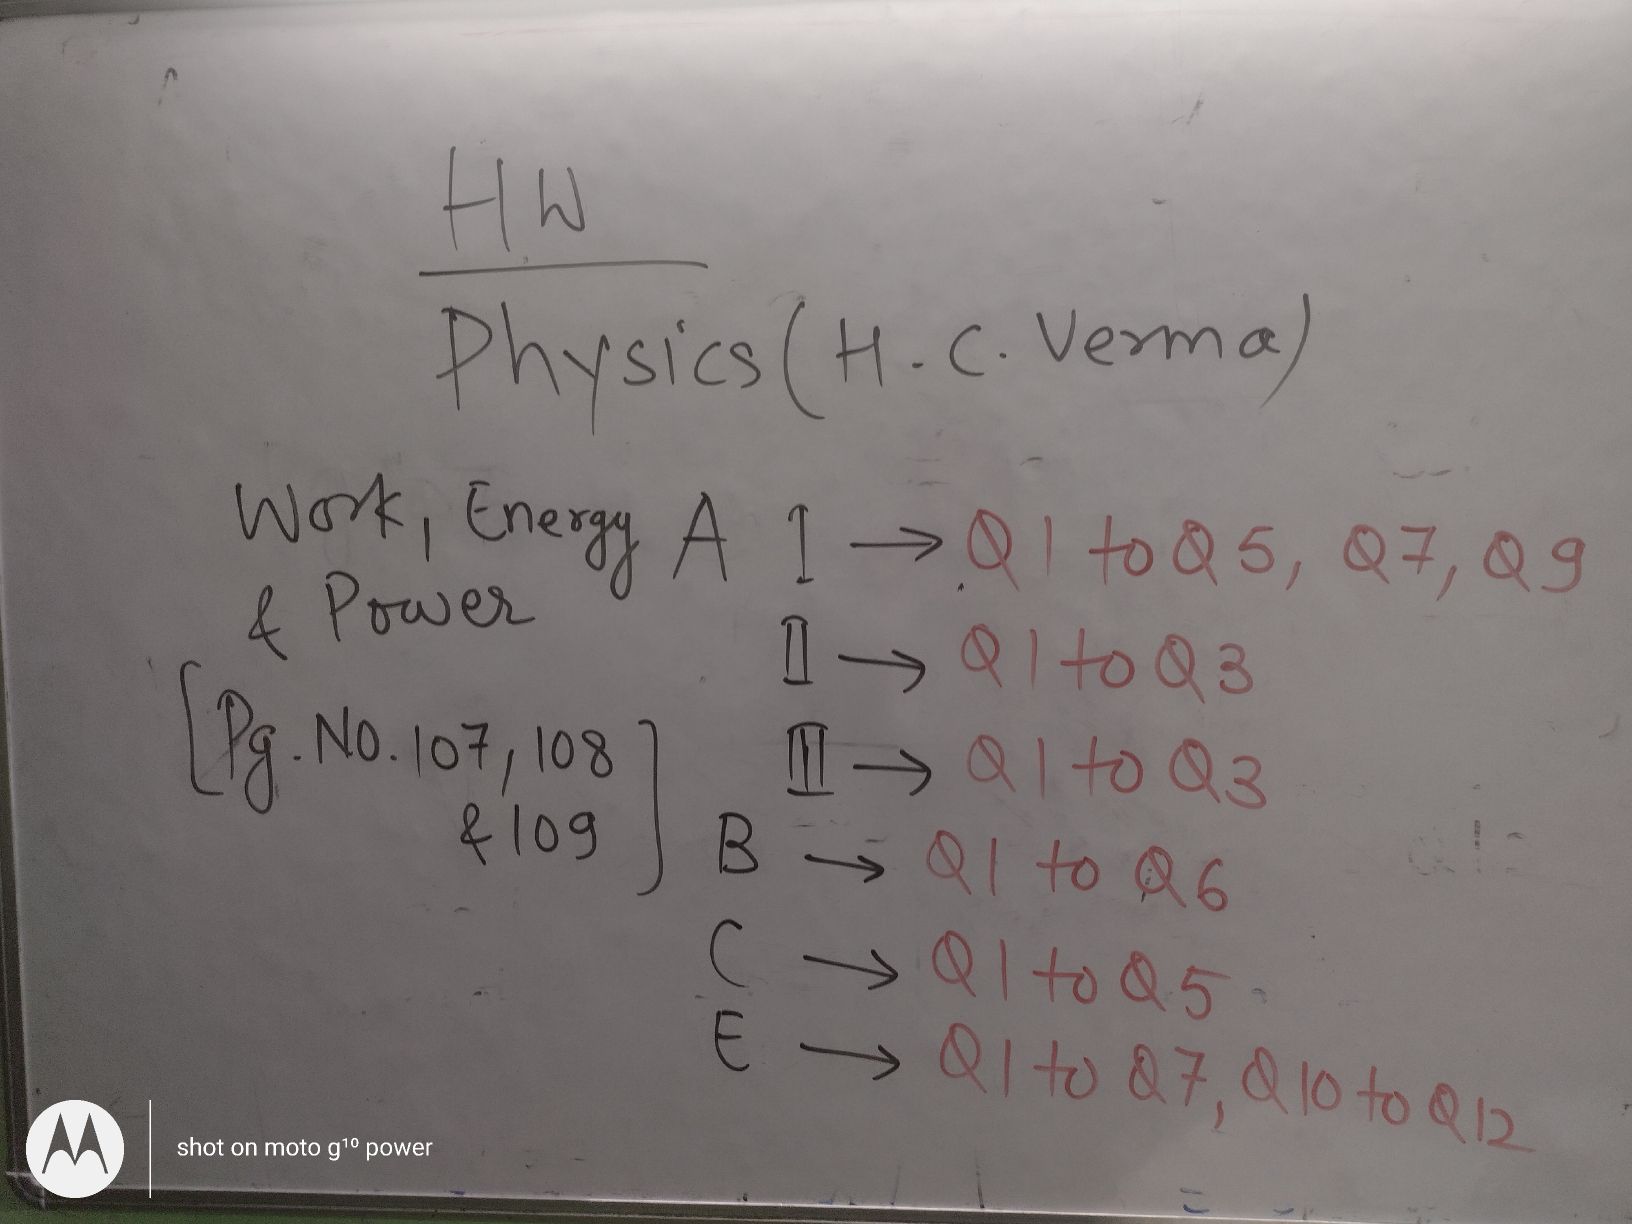 HW
Physics (H.C. Verma)
Work, Energy A I → Q1 to Q5, Q7, Q9
& Power
II → Q1 to Q3
[Pg. No. 107, 108
III → Q1 to Q3
& 109]
B → Q1 to Q6
C → Q1 to Q5
E → Q1 to Q7, Q10 to Q12
shot on moto g¹⁰ power